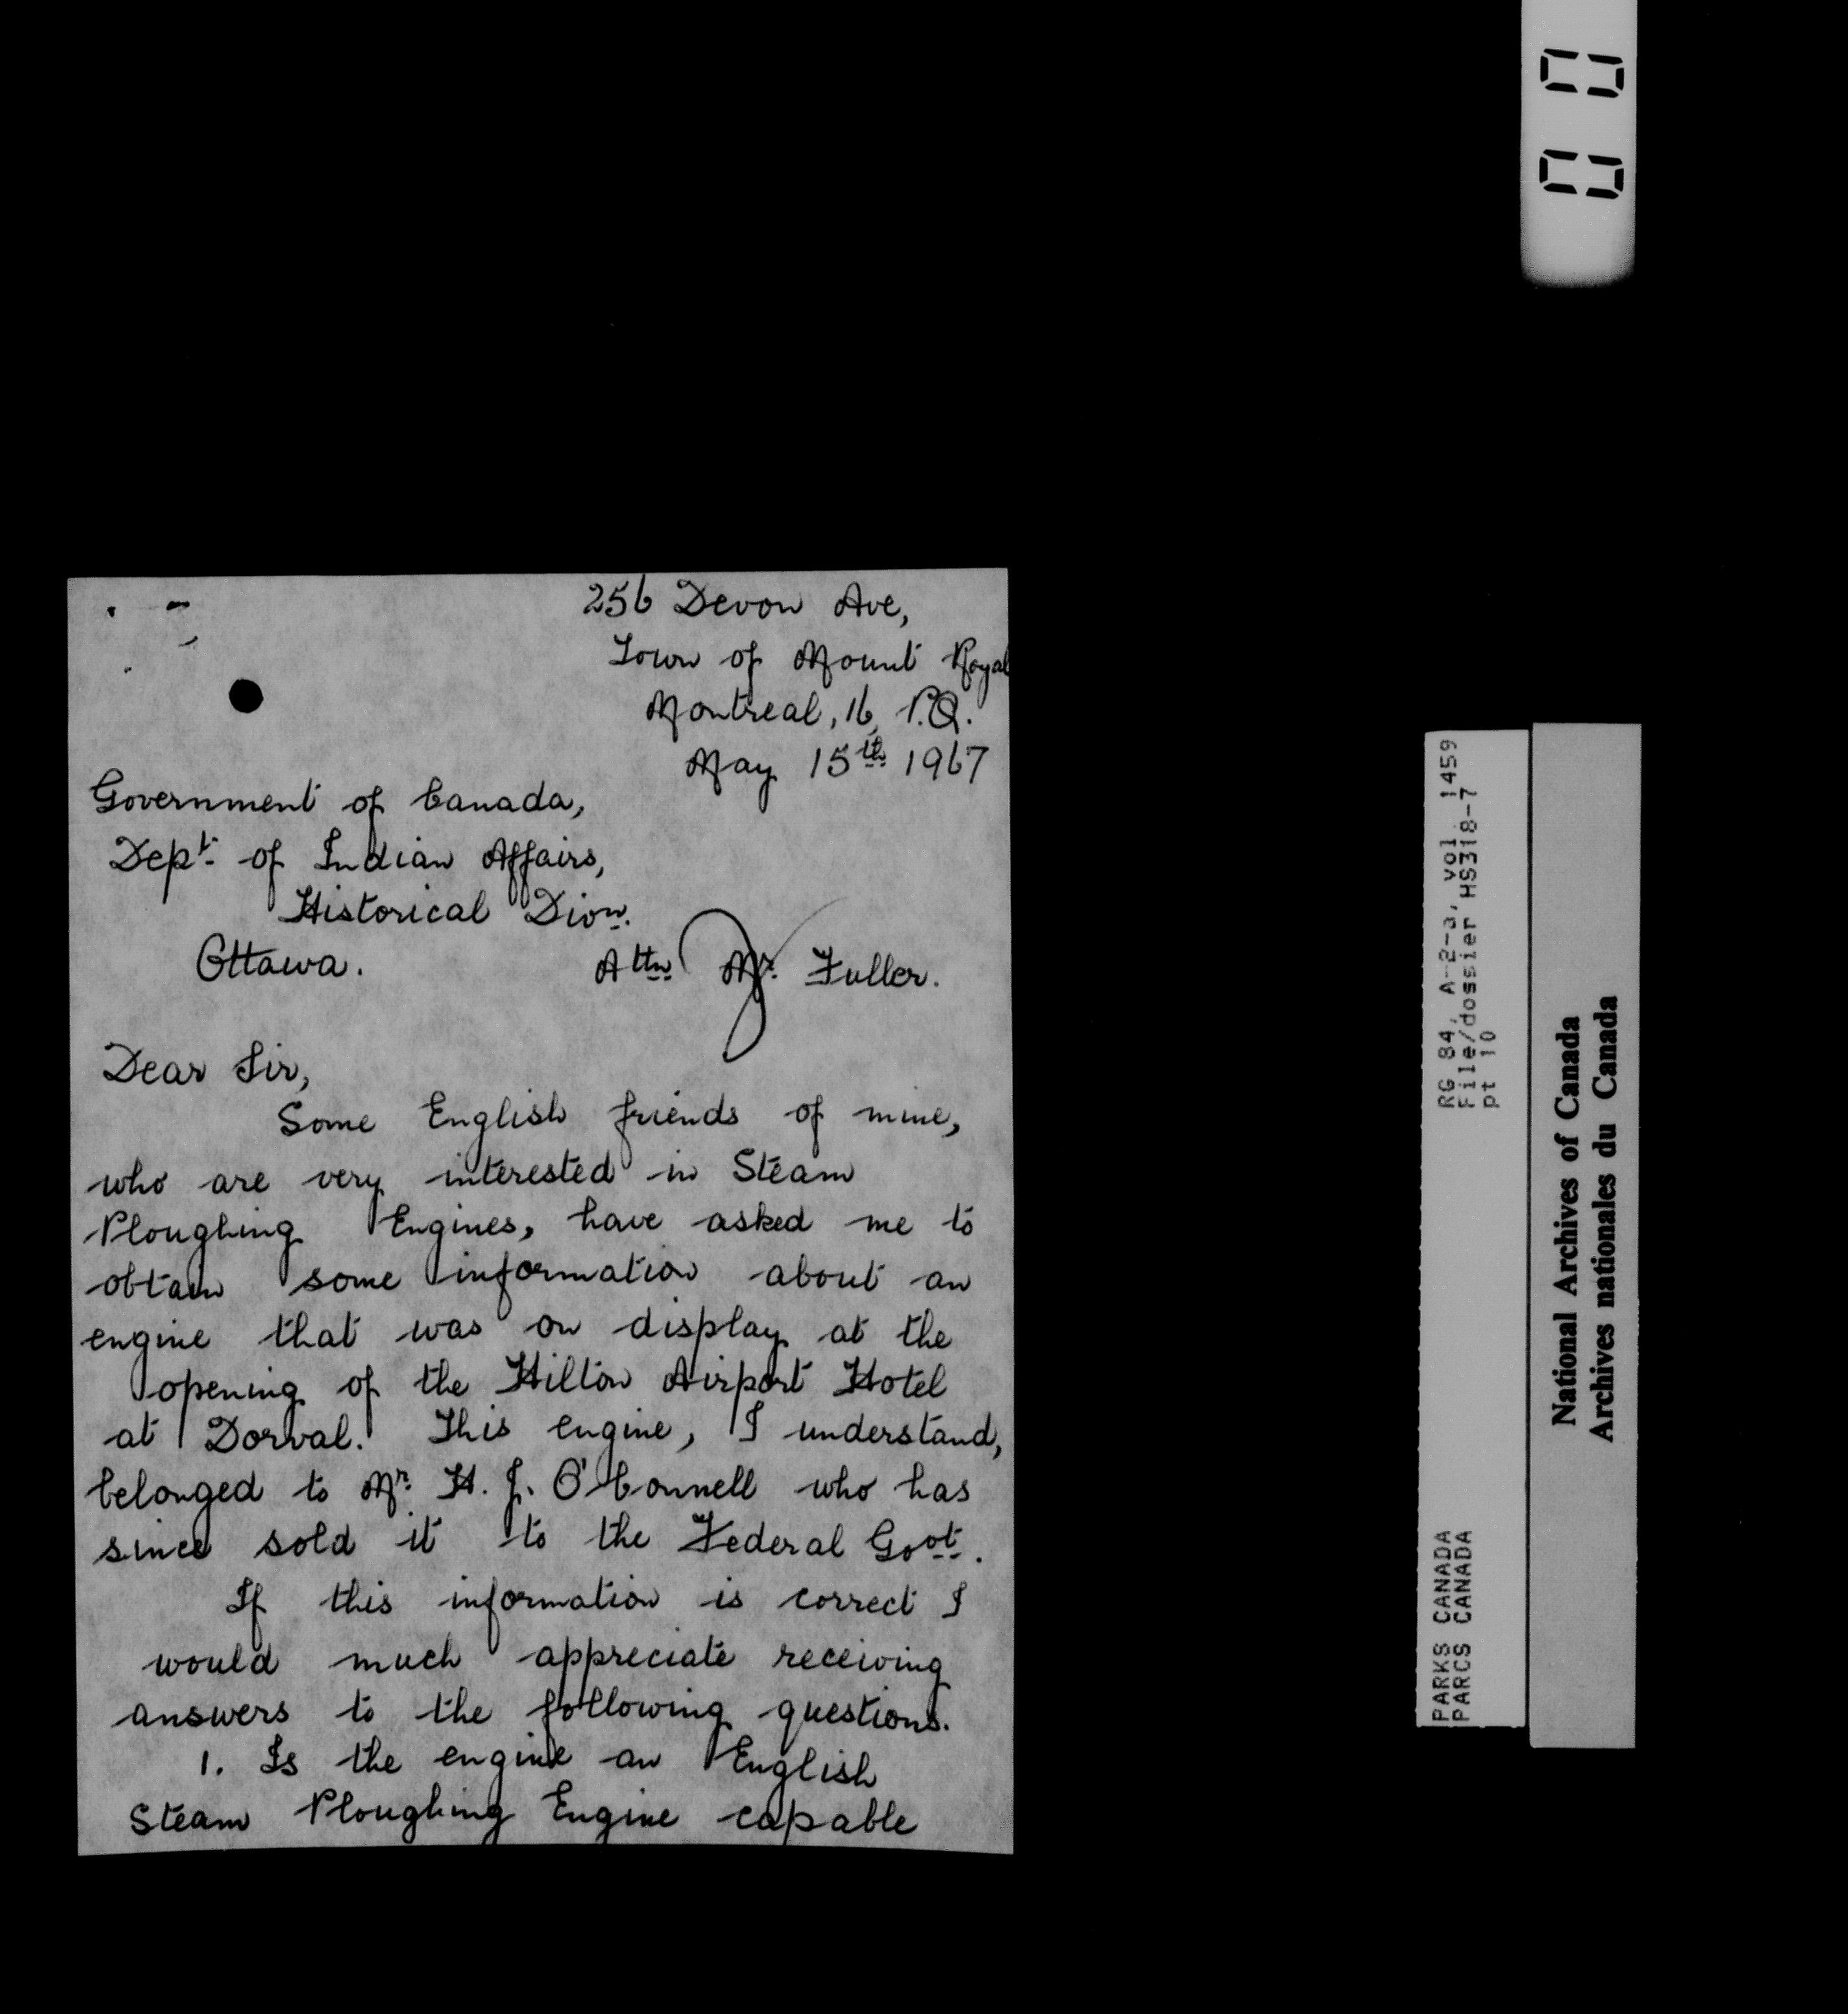 256 Devon Ave,
Town of Mount Royal
Montreal, 16, P.Q.
May 15th 1967
Government of Canada,
Dept. of Indian Affairs,
Historical Divn.
Ottawa.
Attn Mr. Fuller.
Dear Sir,
Some English friends of mine,
who are very interested in Steam
Ploughing Engines, have asked me to
obtain some information about an
engine that was on display at the
opening of the Hilton Airport Hotel
at Dorval. This engine, I understand,
belonged to Mr. H. J. O'Connell who has
since sold it to the Federal Govt.
If this information is correct I
would much appreciate receiving
answers to the following questions.
1. Is the engine an English
Steam Ploughing Engine capable
RG 84, A-2-a, vol. 1459
File/dossier HS318-7
pt 10
PARKS CANADA
PARCS CANADA
National Archives of Canada
Archives nationales du Canada